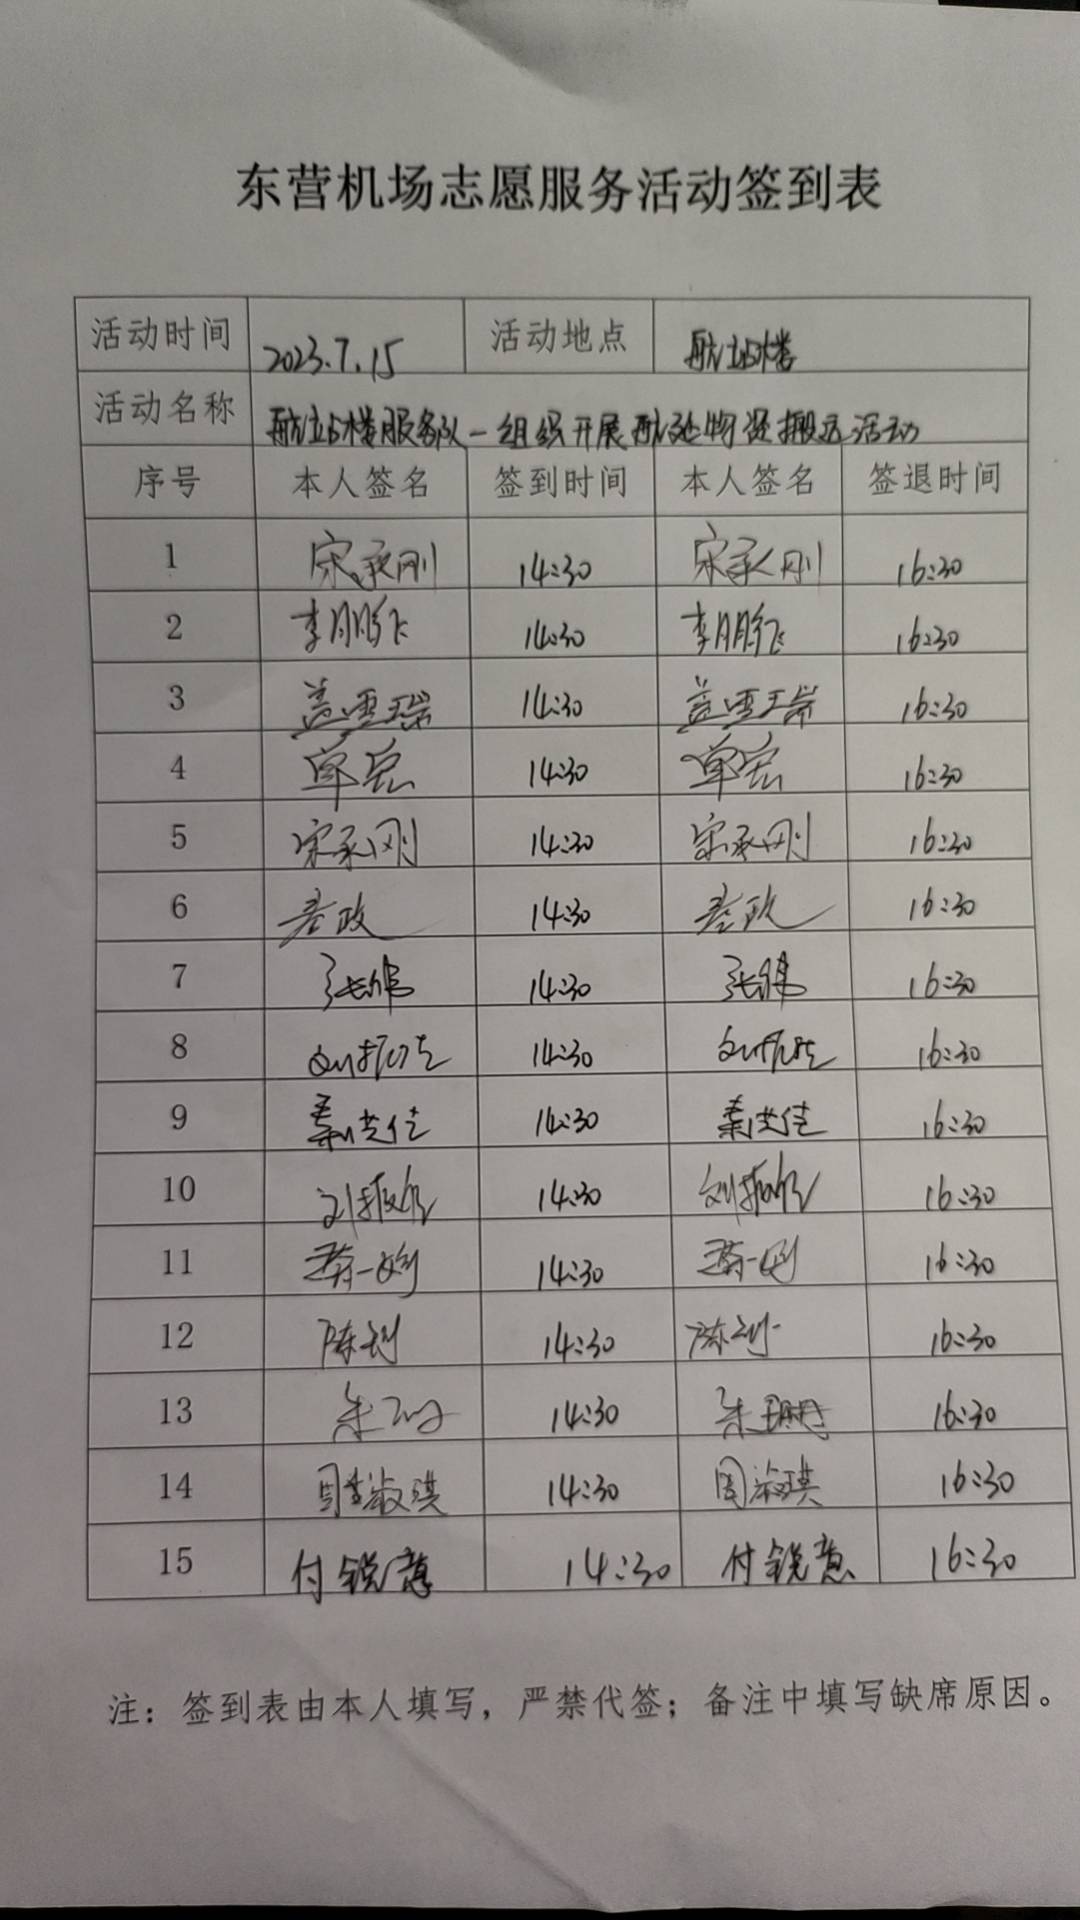 东营机场志愿服务活动签到表
活动时间 2023.7.15 活动地点 航站楼
活动名称 航站楼服务队一组织开展航延物资搬运活动
序号 本人签名 签到时间 本人签名 签退时间
1 宋承刚 14:30 宋承刚 16:30
2 李鹏飞 14:30 李鹏飞 16:30
3 盖雪瑞 14:30 盖雪瑞 16:30
4 单宏 14:30 单宏 16:30
5 宋承刚 14:30 宋承刚 16:30
6 14:30 16:30
7 张伟 14:30 张伟 16:30
8 14:30 16:30
9 秦艺佳 14:30 秦艺佳 16:30
10 14:30 16:30
11 14:30 16:30
12 陈钊 14:30 陈钊 16:30
13 朱珊 14:30 朱珊 16:30
14 周淑琪 14:30 周淑琪 16:30
15 付锐意 14:30 付锐意 16:30
注：签到表由本人填写，严禁代签；备注中填写缺席原因。